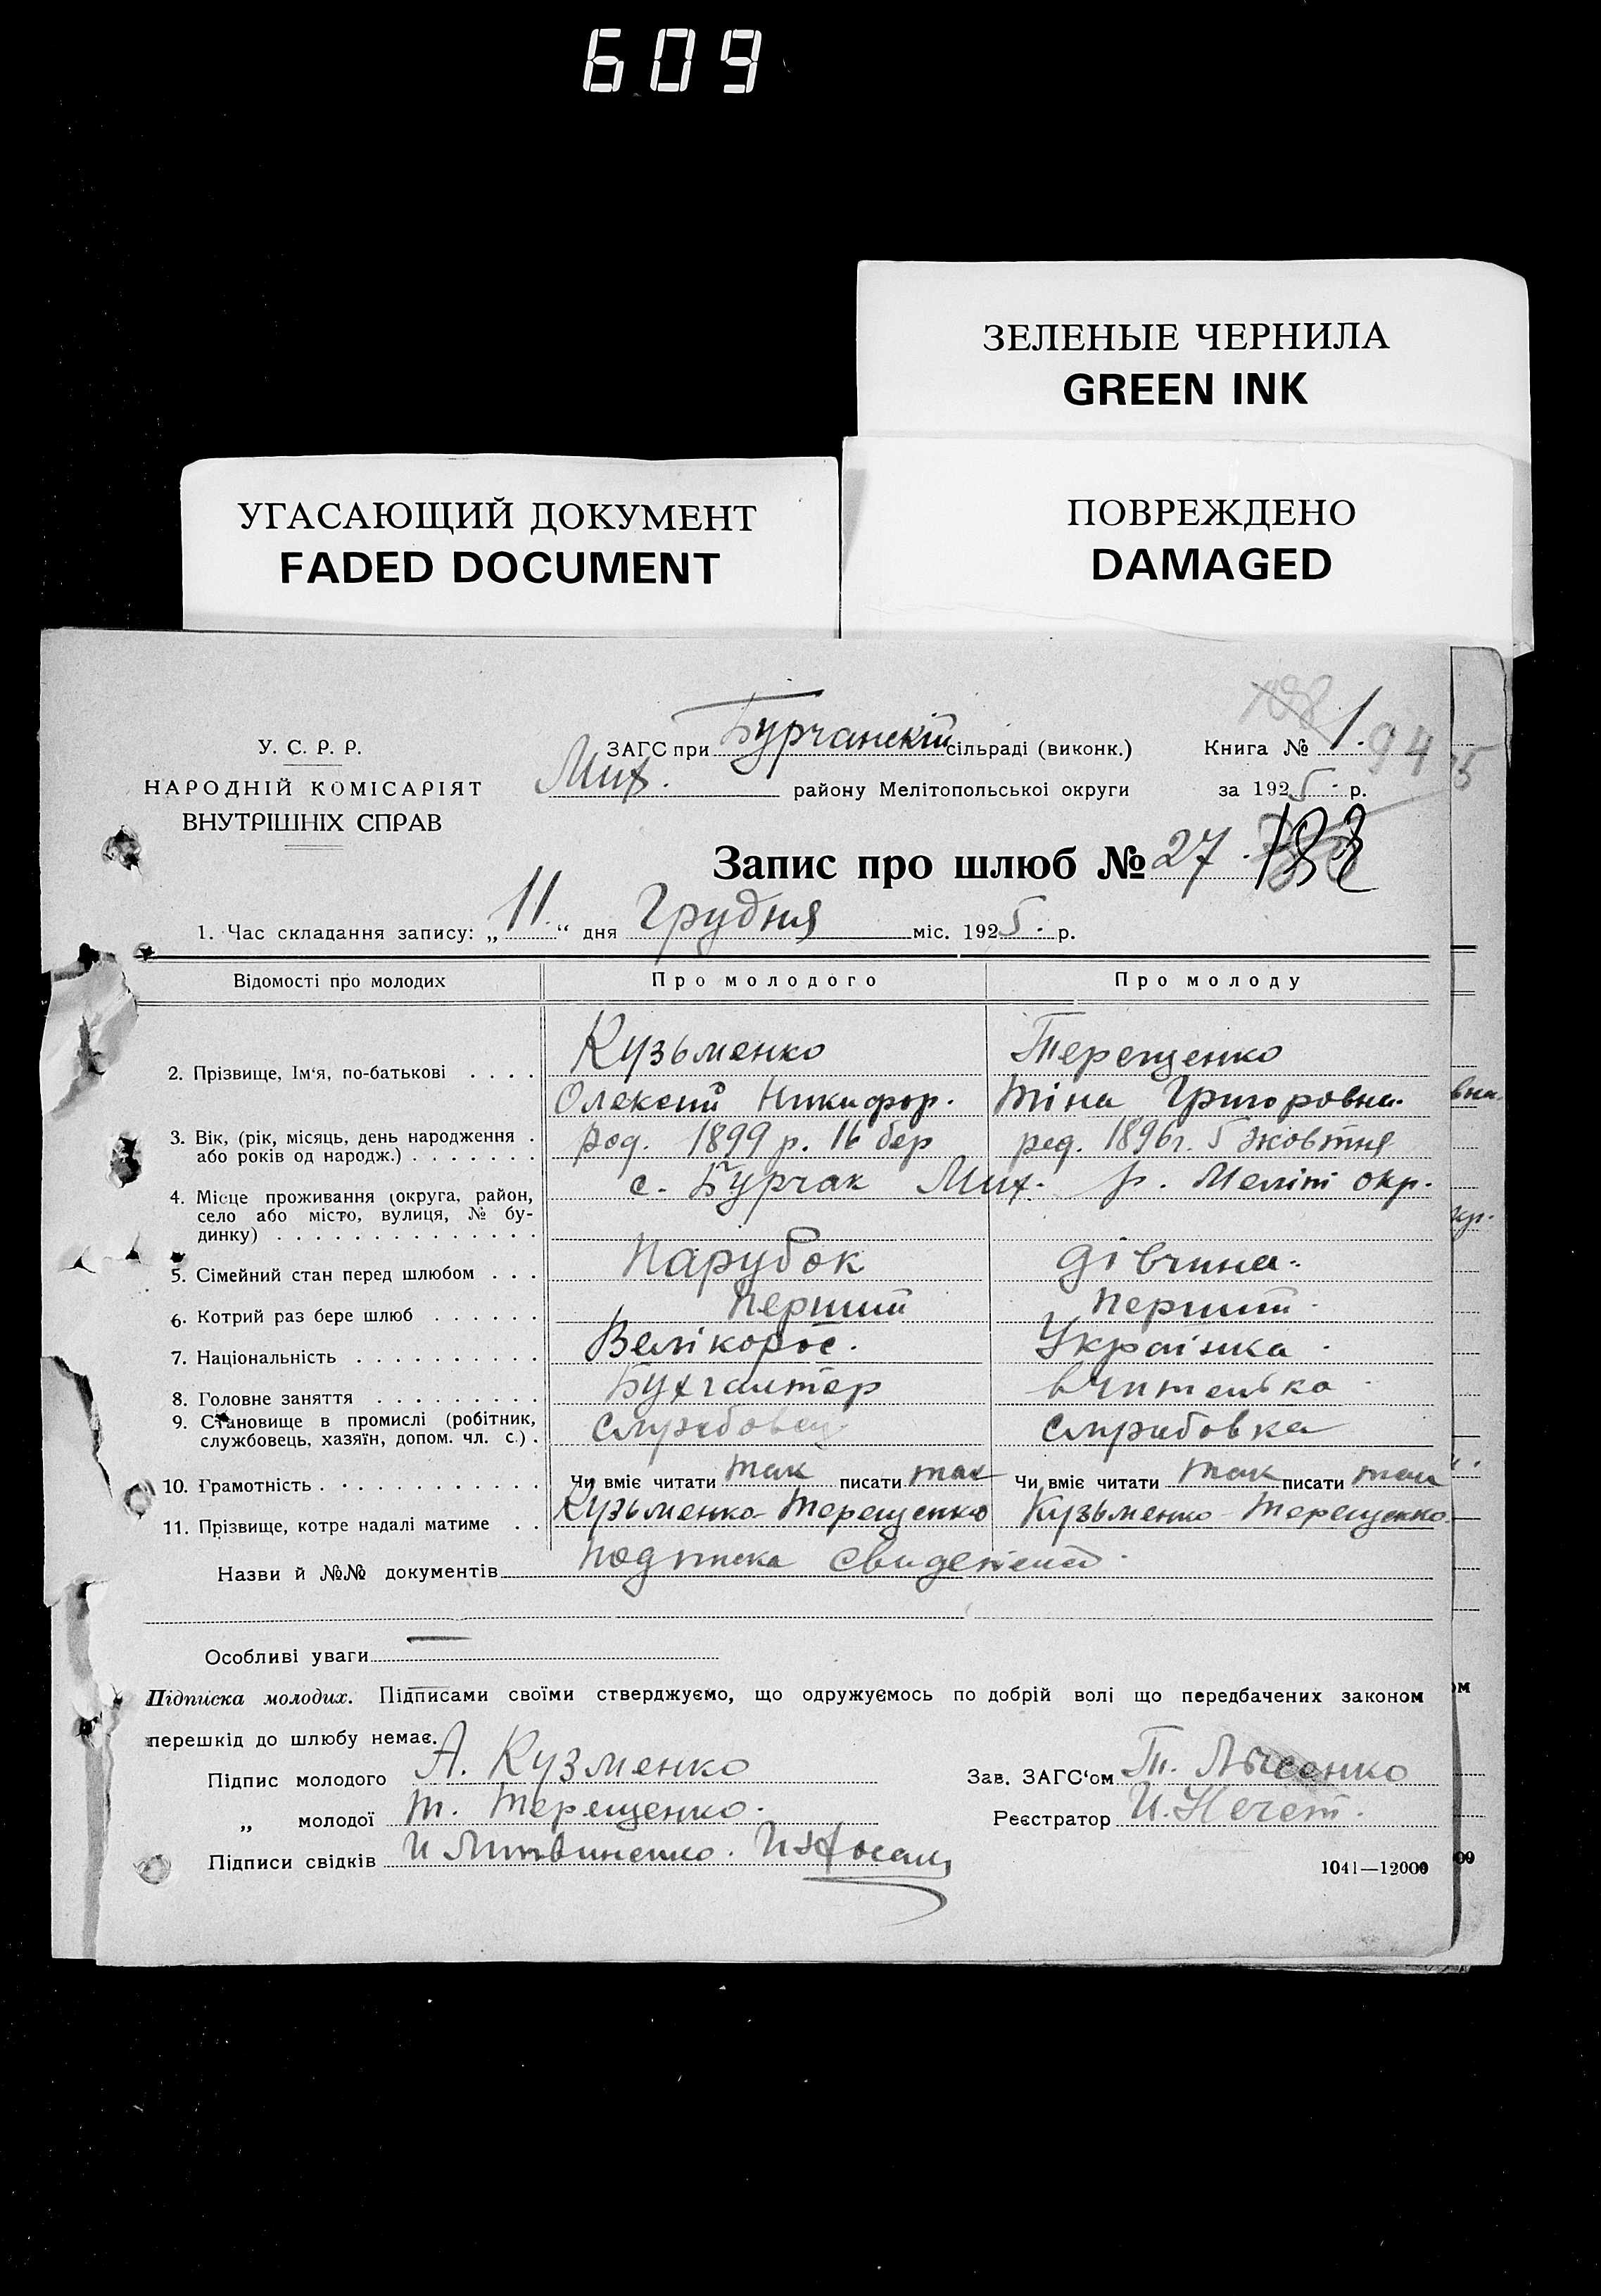 609
ЗЕЛЕНЫЕ ЧЕРНИЛА
GREEN INK
УГАСАЮЩИЙ ДОКУМЕНТ
FADED DOCUMENT
ПОВРЕЖДЕНО
DAMAGED
У. С. Р. Р.
НАРОДНІЙ КОМІСАРІЯТ
ВНУТРІШНІХ СПРАВ
ЗАГС при Бурчанскій сільраді (виконк.)
Мих. району Мелітопольскої округи
Книга № 1. 94
за 1925. р.
Запис про шлюб № 27.
1. Час складання запису: „11.“ дня Грудня міс. 1925. р.
Відомості про молодих Про молодого Про молоду
2. Прізвище, Ім‘я, по-батькові . . . . Кузьменко Терещенко
Олексий Никифор. Тіна Григоровна.
3. Вік, (рік, місяць, день народження . або років од народж.) . . . . . . . род. 1899 р. 16 бер род. 1896 г. 5 жовтня
4. Місце проживання (округа, район, с. Бурчак Мих. р. Меліт окр.
село або місто, вулиця, № бу-
динку) . . . . . . . . . . . . . .
5. Сімейний стан перед шлюбом . . . Парубок дівчина.
6. Котрий раз бере шлюб . . . . . . перший перший.
7. Національність . . . . . . . . . . Велікорос. Українка.
8. Головне заняття . . . . . . . . . Бухгалтер вчителька
9. Становище в промислі (робітник, службовець, хазяїн, допом. чл. с.) . Службовец Службовка
10. Грамотність . . . . . . . . . . . . Чи вміє читати так писати так Чи вміє читати так писати так
11. Прізвище, котре надалі матиме . . Кузьменко-Терещенко Кузьменко-Терещенко.
Назви й №№ документів подписка
Особливі уваги —
Підписка молодих. Підписами своїми стверджуємо, що одружуємось по добрій волі що передбачених законом
перешкід до шлюбу немає.
Підпис молодого А. Кузменко
„ молодої Т. Терещенко.
Підписи свідків И Литвиненко.
Зав. ЗАГС‘ом Т. Лысенко
Реєстратор И. Нечет.
1041—12000